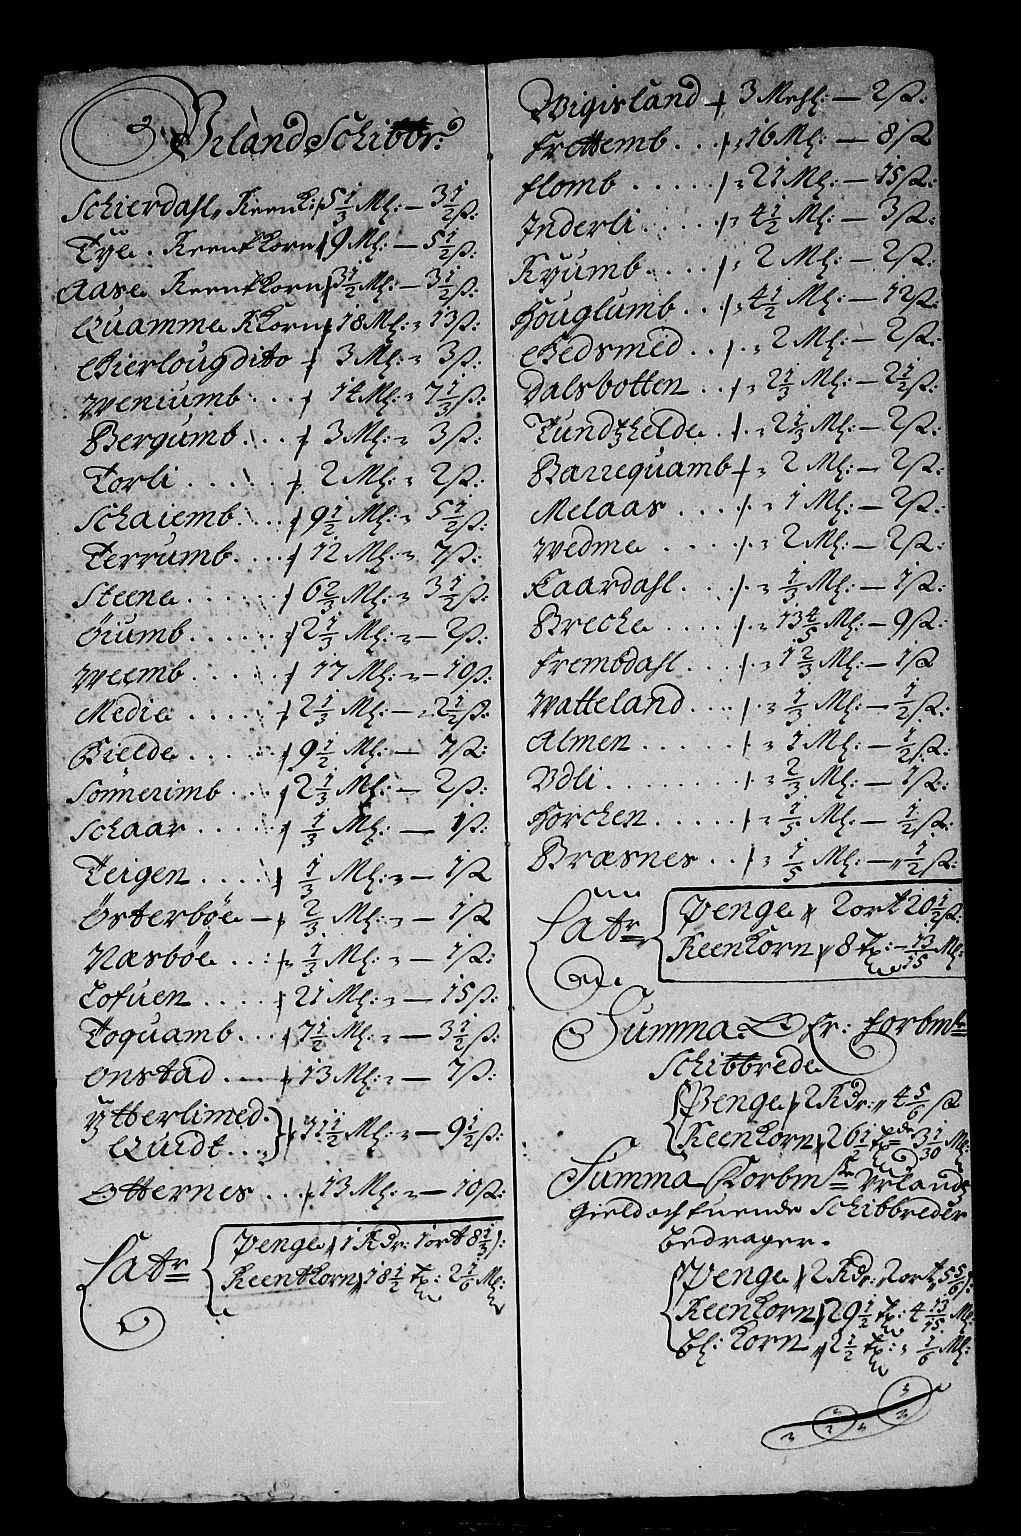 Urland Schibbr:
Schierdahl, Reenk: 5 1/3 Ml: — 3 1/2 ß:
Tÿe. Reentkorn 9 Ml: — 5 1/2 ß:
Aase Reentkorn 3 1/2 Ml: — 3 1/2 ß:
Quamme RKorn 18 Ml: 13 ß:
Bierloug dito 3 Ml: 3 ß:
Weniumb 14 Ml: 7 1/3 ß:
Bergumb 3 Ml: 3 ß:
Torli 2 Ml: 2 ß:
Schaiemb 9 1/2 Ml: 5 1/2 ß:
Terrumb 12 Ml: 7 ß:
Steene 6 2/3 Ml: 3 1/2 ß:
Öiumb 2 1/3 Ml: — 2 ß:
Weemb 17 Ml: — 10 ß:
Medie 2 1/3 Ml: — 2 1/2 ß:
Gielde 9 1/2 Ml: — 7 ß:
Sönnerimb 2 1/3 Ml: — 2 ß:
Schaar 1/3 Ml: — 1 ß:
Teigen 1/3 Ml: — 1 ß
Österböe — 2/3 Ml: — 1 ß
Næsböe 1/3 Ml: — 1 ß:
Lofuen 21 Ml: — 15 ß:
Toquamb 7 1/2 Ml: — 3 1/2 ß:
Onstad 13 Ml: — 7 ß:
Ÿtterlimed
Quidt 11 1/2 Ml: — 9 1/2 ß:
Otternes 13 Ml: — 10 ß:
Latr
Penge 1 Rdr: 1 ort 8 1/3 ß:
Reentkorn 18 1/2 Tp: 2 1/6 Ml:
Wigisland 3 Mehl: — 2 ß:
Frettemb 16 Ml: — 8 ß
Flomb 21 Ml: — 15 ß:
Inderli 4 1/2 Ml: — 3 ß:
Ryumb 2 Ml: — 2 ß:
Houglumb 4 1/2 Ml: — 12 ß:
Gedsmed 2 Ml: — 2 ß:
Dalsbotten 2 1/3 Ml: — 2 1/2 ß:
Tundshelde 2 1/3 Ml: — 2 ß:
Barrequamb 2 Ml: — 2 ß:
Melaas 1 Ml: — 2 ß:
Wedme 2 Ml: — 2 ß:
Kaardahl 1/3 Ml: — 1 ß:
Breche 13 4/5 Ml: — 9 ß:
Frembdahl 1 2/3 Ml: — 1 ß
Watteland 1/3 Ml: — 1/2 ß:
Almen 1 Ml: — 1/2 ß:
Udli 2/3 Ml: — 1 ß:
Horchen 1/5 Ml: — 1/2 ß:
Bræsnes 1/5 Ml: — 1/2 ß:
Latr
Penge 2 ort 20 1/2 ß:
Reenkorn 8 Tp: — 13/15 Ml:
Summa Fr: forbmte
Schibbrede
Penge 2 Rdr: 4 5/6 ß
Reenkorn 26 1/2 Tpde 3 1/30 Ml:
Summa Korbmte Urlands
Gield och fuende Schibbreder
Bedrager.
Penge 2 Rdr: 2 ort 5 5/6 ß:
Reenkorn 29 1/2 Tp: 4 13/15 Ml:
Bl: Korn 2 1/2 Tp: 1/6 Ml: